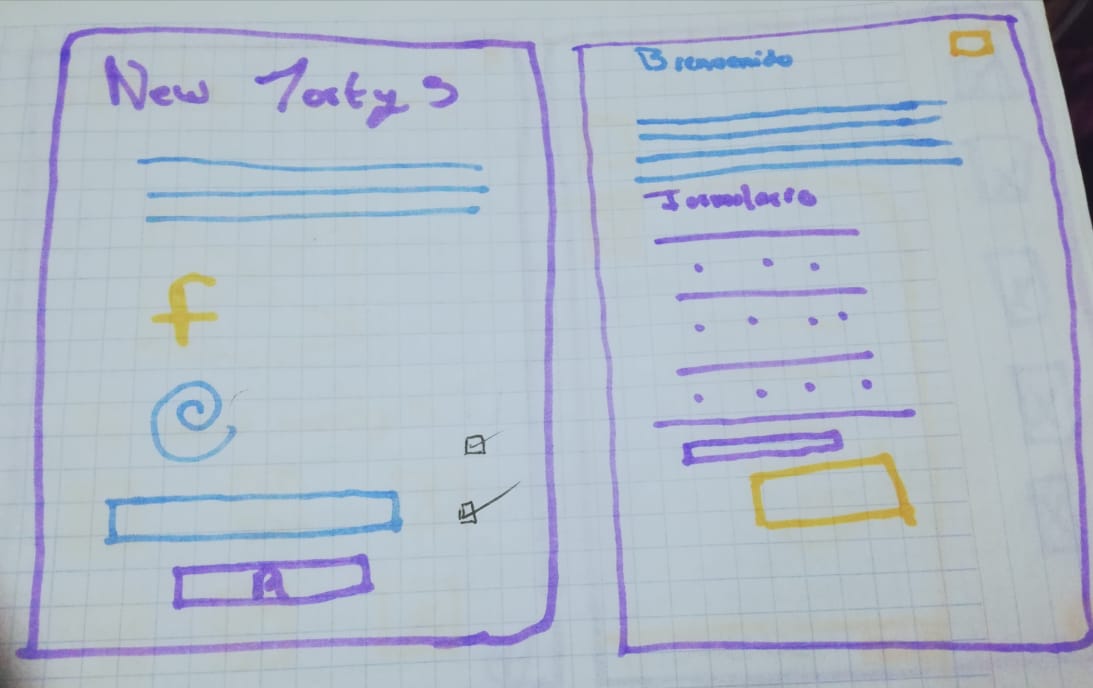 New Torty s
f
@
A
Bienvenido
Formulario